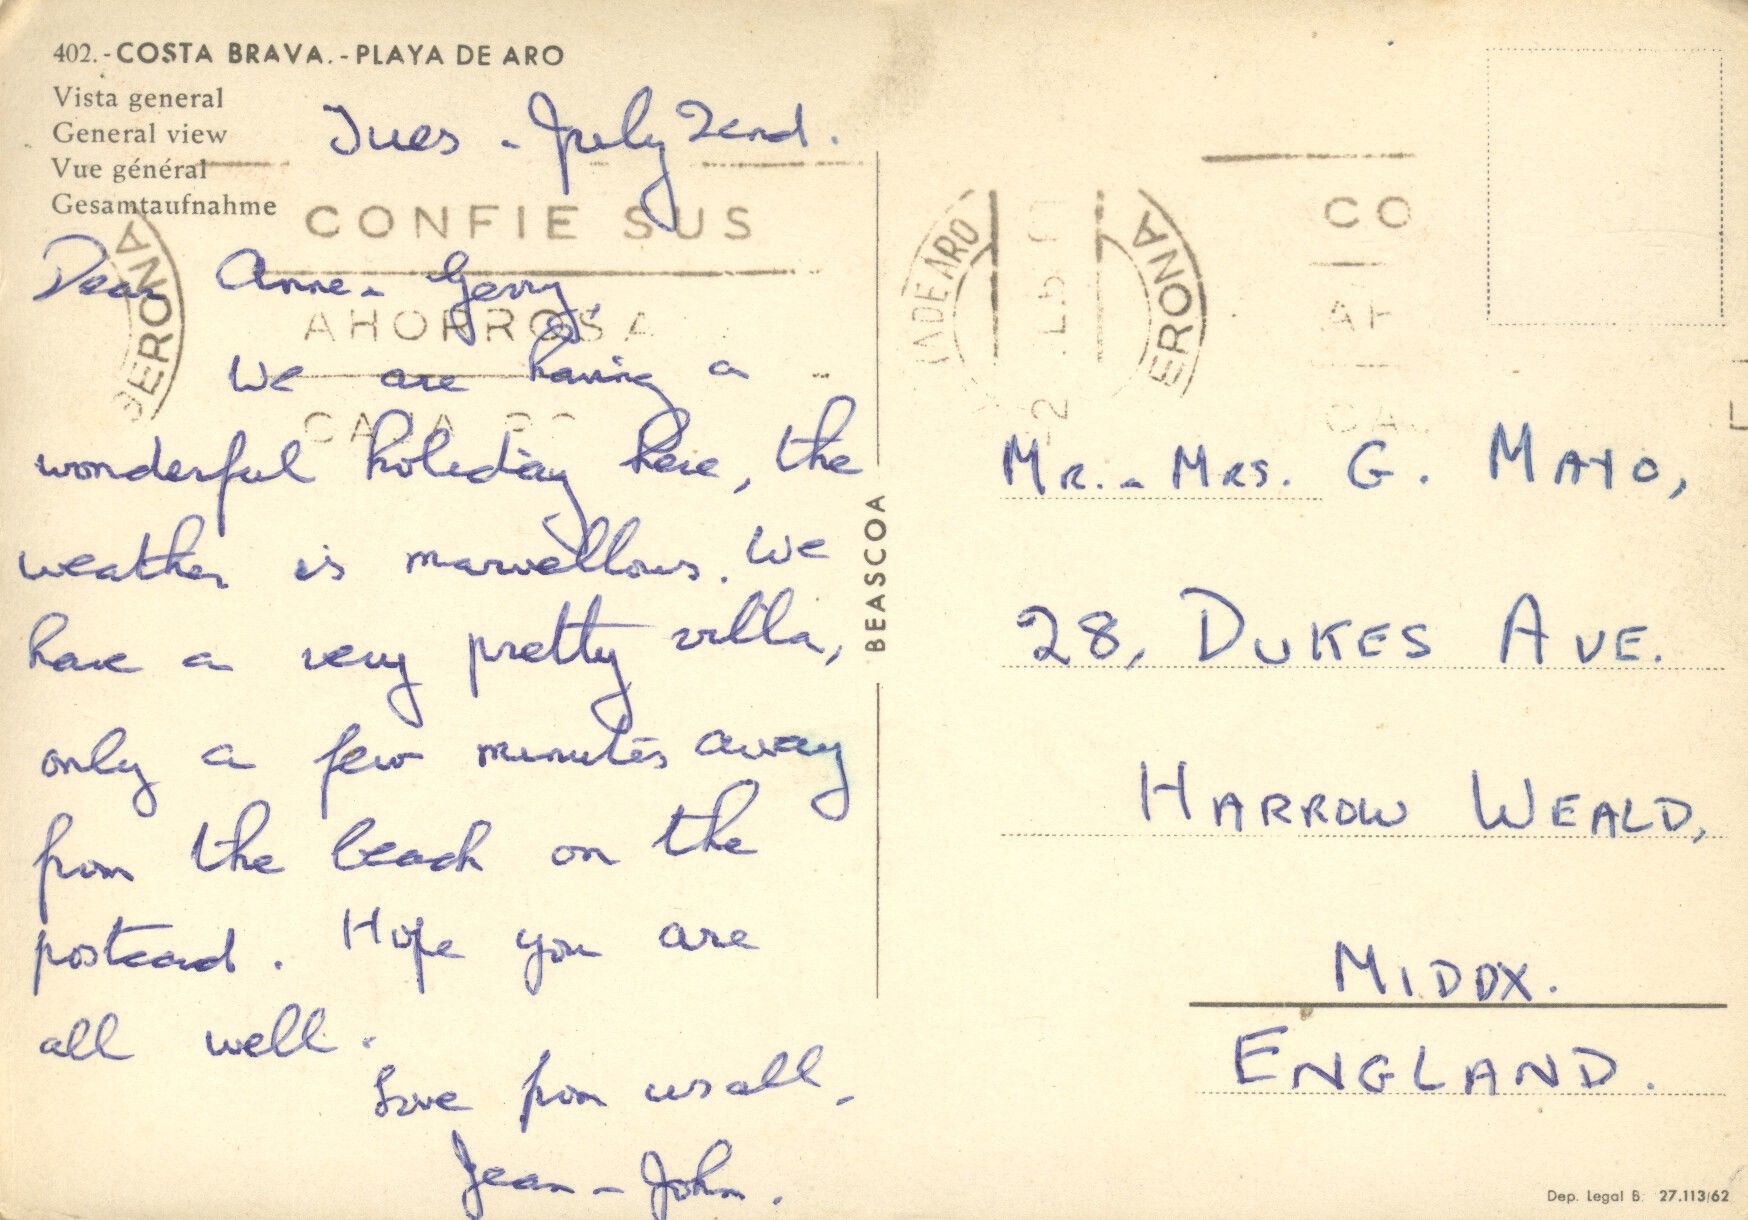 402.-COSTA BRAVA.-PLAYA DE ARO
Vista general
General view
Vue général
Gesamtaufnahme
Tues - July 22nd.
CONFIE SUS
AHORROS A
CAJA
GERONA
Dear Anne - Gerry,
We are having a
wonderful holiday here, the
weather is marvellous. We
have a very pretty villa,
only a few minutes away
from the beach on the
postcard. Hope you are
all well.
Love from us all,
Jean - John.
BEASCOA
DE ARO
ERONA
CO
AH
CA
MR. - MRS. G. MAYO,
28, DUKES AVE.
HARROW WEALD,
MIDDX.
ENGLAND.
Dep. Legal B. 27.113/62